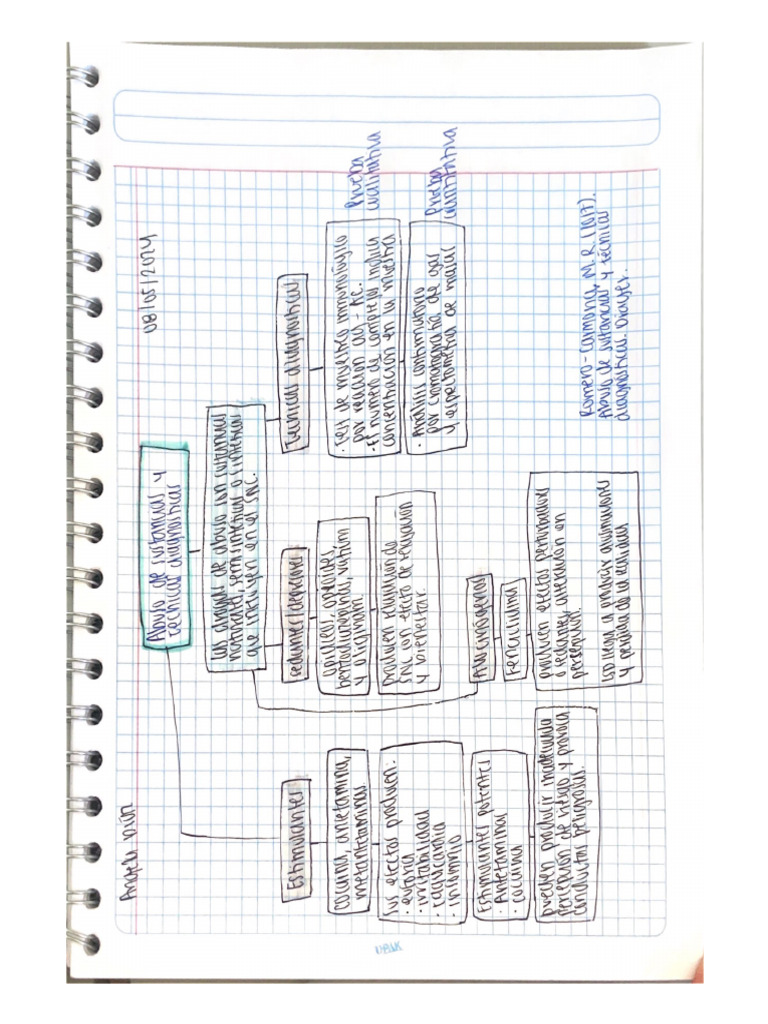 08/05/2024
Abuso de sustancias y
técnicas diagnósticas
Las drogas de abuso son sustancias
naturales, semisintéticas o sintéticas
que influyen en el SNC.
Estimulantes
cocaína, anfetamina,
metanfetaminas.
Sus efectos producen:
· euforia
· irritabilidad
· taquicardia
· insomnio
Estimulantes potentes
· Anfetaminas
· cocaína
pueden producir inadecuada
percepción de riesgo y provoca
conductas peligrosas.
Sedantes/depresores
opiáceos, opioides,
benzodiacepinas,
y
producen relajación de
SNC con efecto de relajación
y bienestar.
Alucinógenos
Fenciclidina
producen efectos perturbadores
o sedantes, alteración en
percepción.
LSD llega a producir alucinaciones
y pérdida de la realidad
Técnicas diagnósticas
· Test de muestreo inmunológico
por reacción Ag - Ac.
· El número de complejos indica
concentración en la muestra
Prueba
cualitativa
· Análisis confirmatorio
por cromatografía de gas
y espectometría de masas
Prueba
cuantitativa
Romero-Carmona, M.R. (2017).
Abuso de sustancias y técnicas
diagnósticas. Diagser.